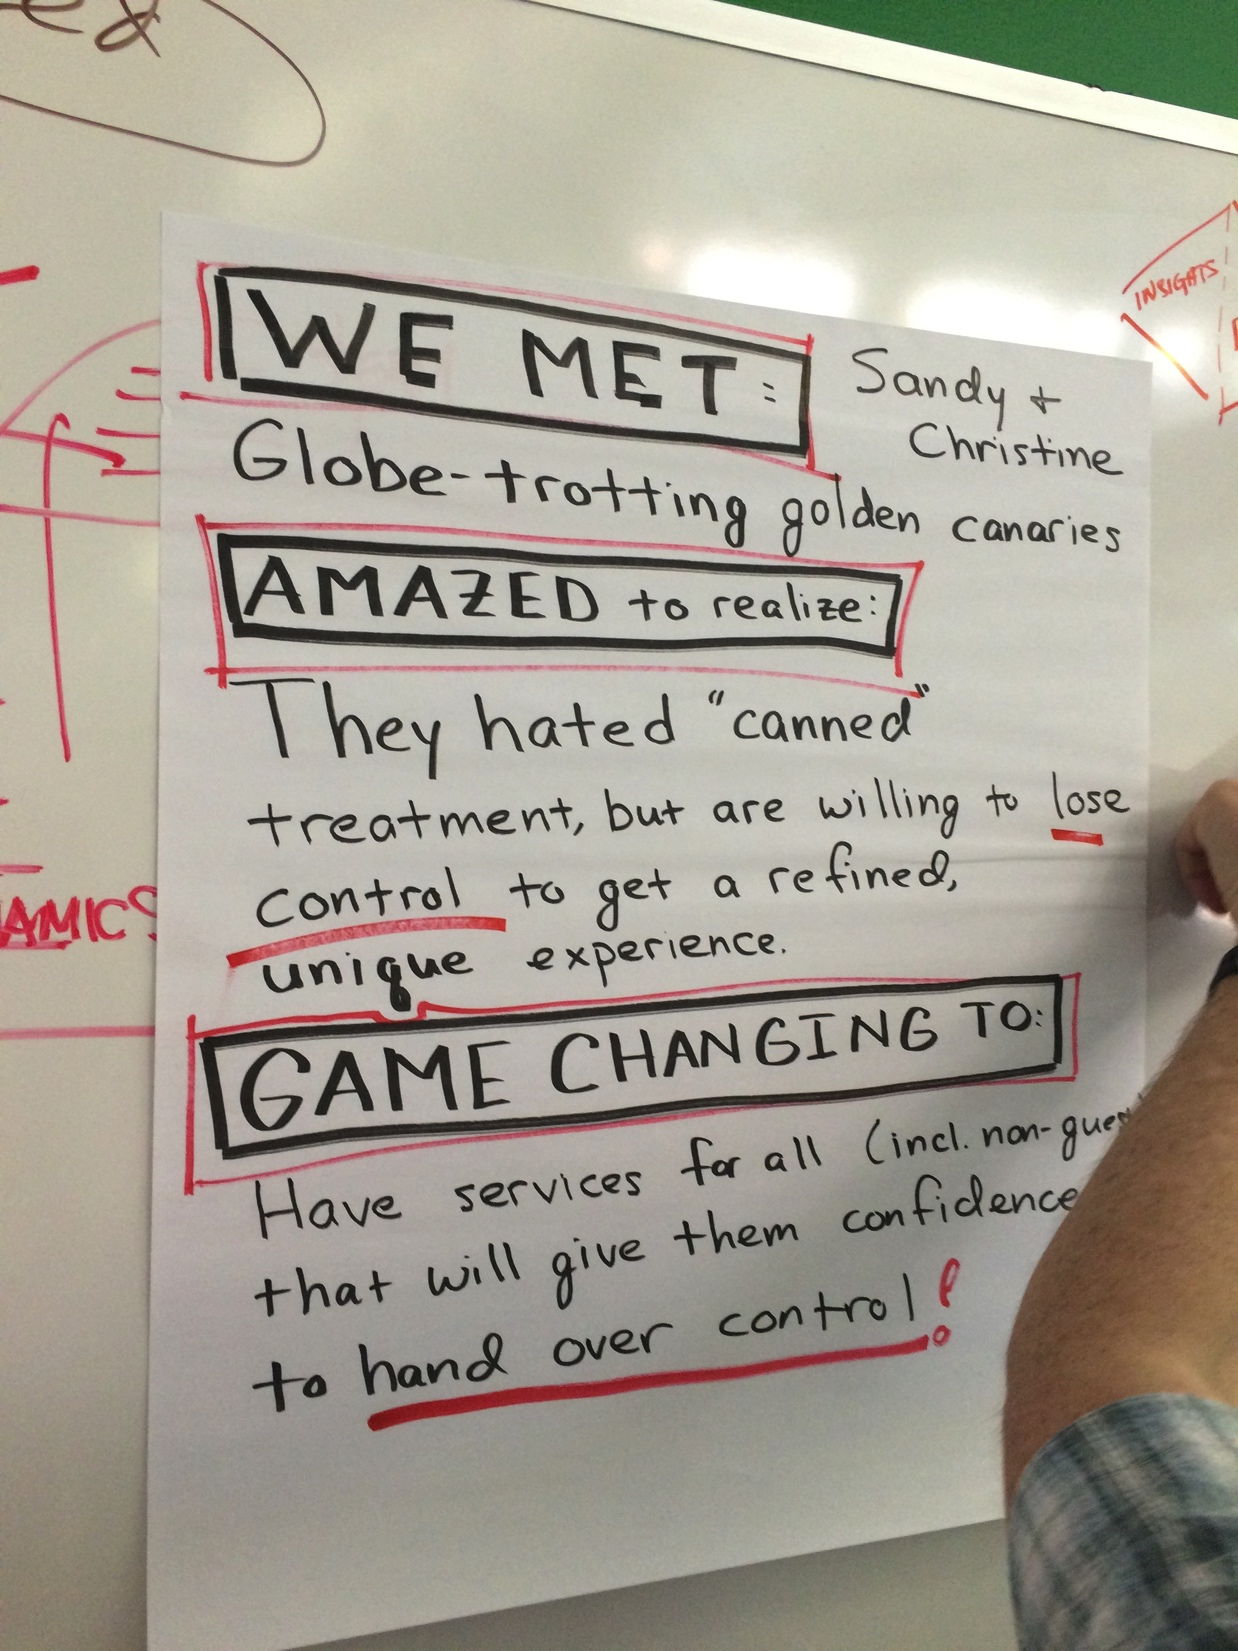 WE MET: Sandy +
Christine
Globe-trotting golden canaries
AMAZED to realize:
They hated "canned"
treatment, but are willing to lose
control to get a refined,
unique experience.
GAME CHANGING TO:
Have services for all (incl. non-gues
that will give them confidence
to hand over control!
INSIGHTS
AMICS